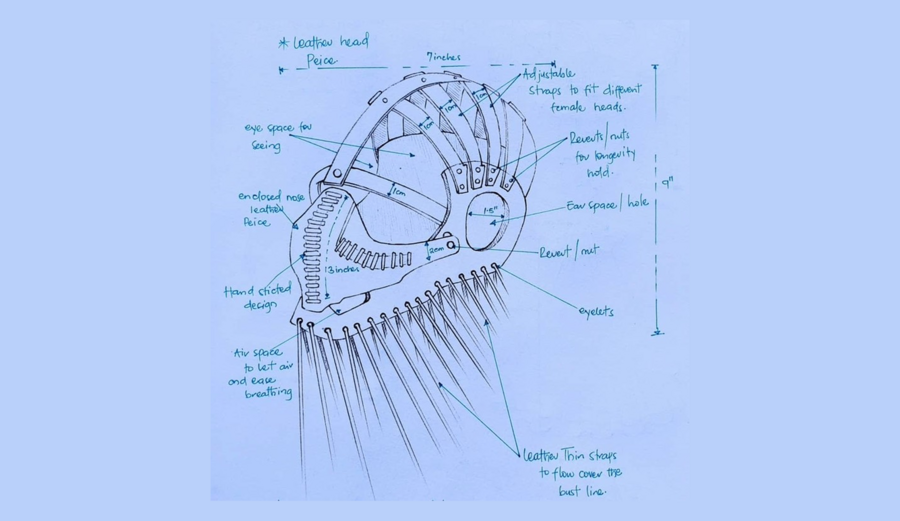 * Leather head
Peice
7inches
Adjustable
straps to fit different
female heads.
1cm
1cm
1cm
eye space for
seeing
Reverts/nuts
for longevity
hold.
9"
1cm
enclosed nose
leather
Peice
1.5"
Ear space/hole
2cm
Revert/nut
3inches
Hand sticted
design
eyelets
Air space
to let air
and ease
breathing
Leather Thin straps
to flow cover the
bust line.